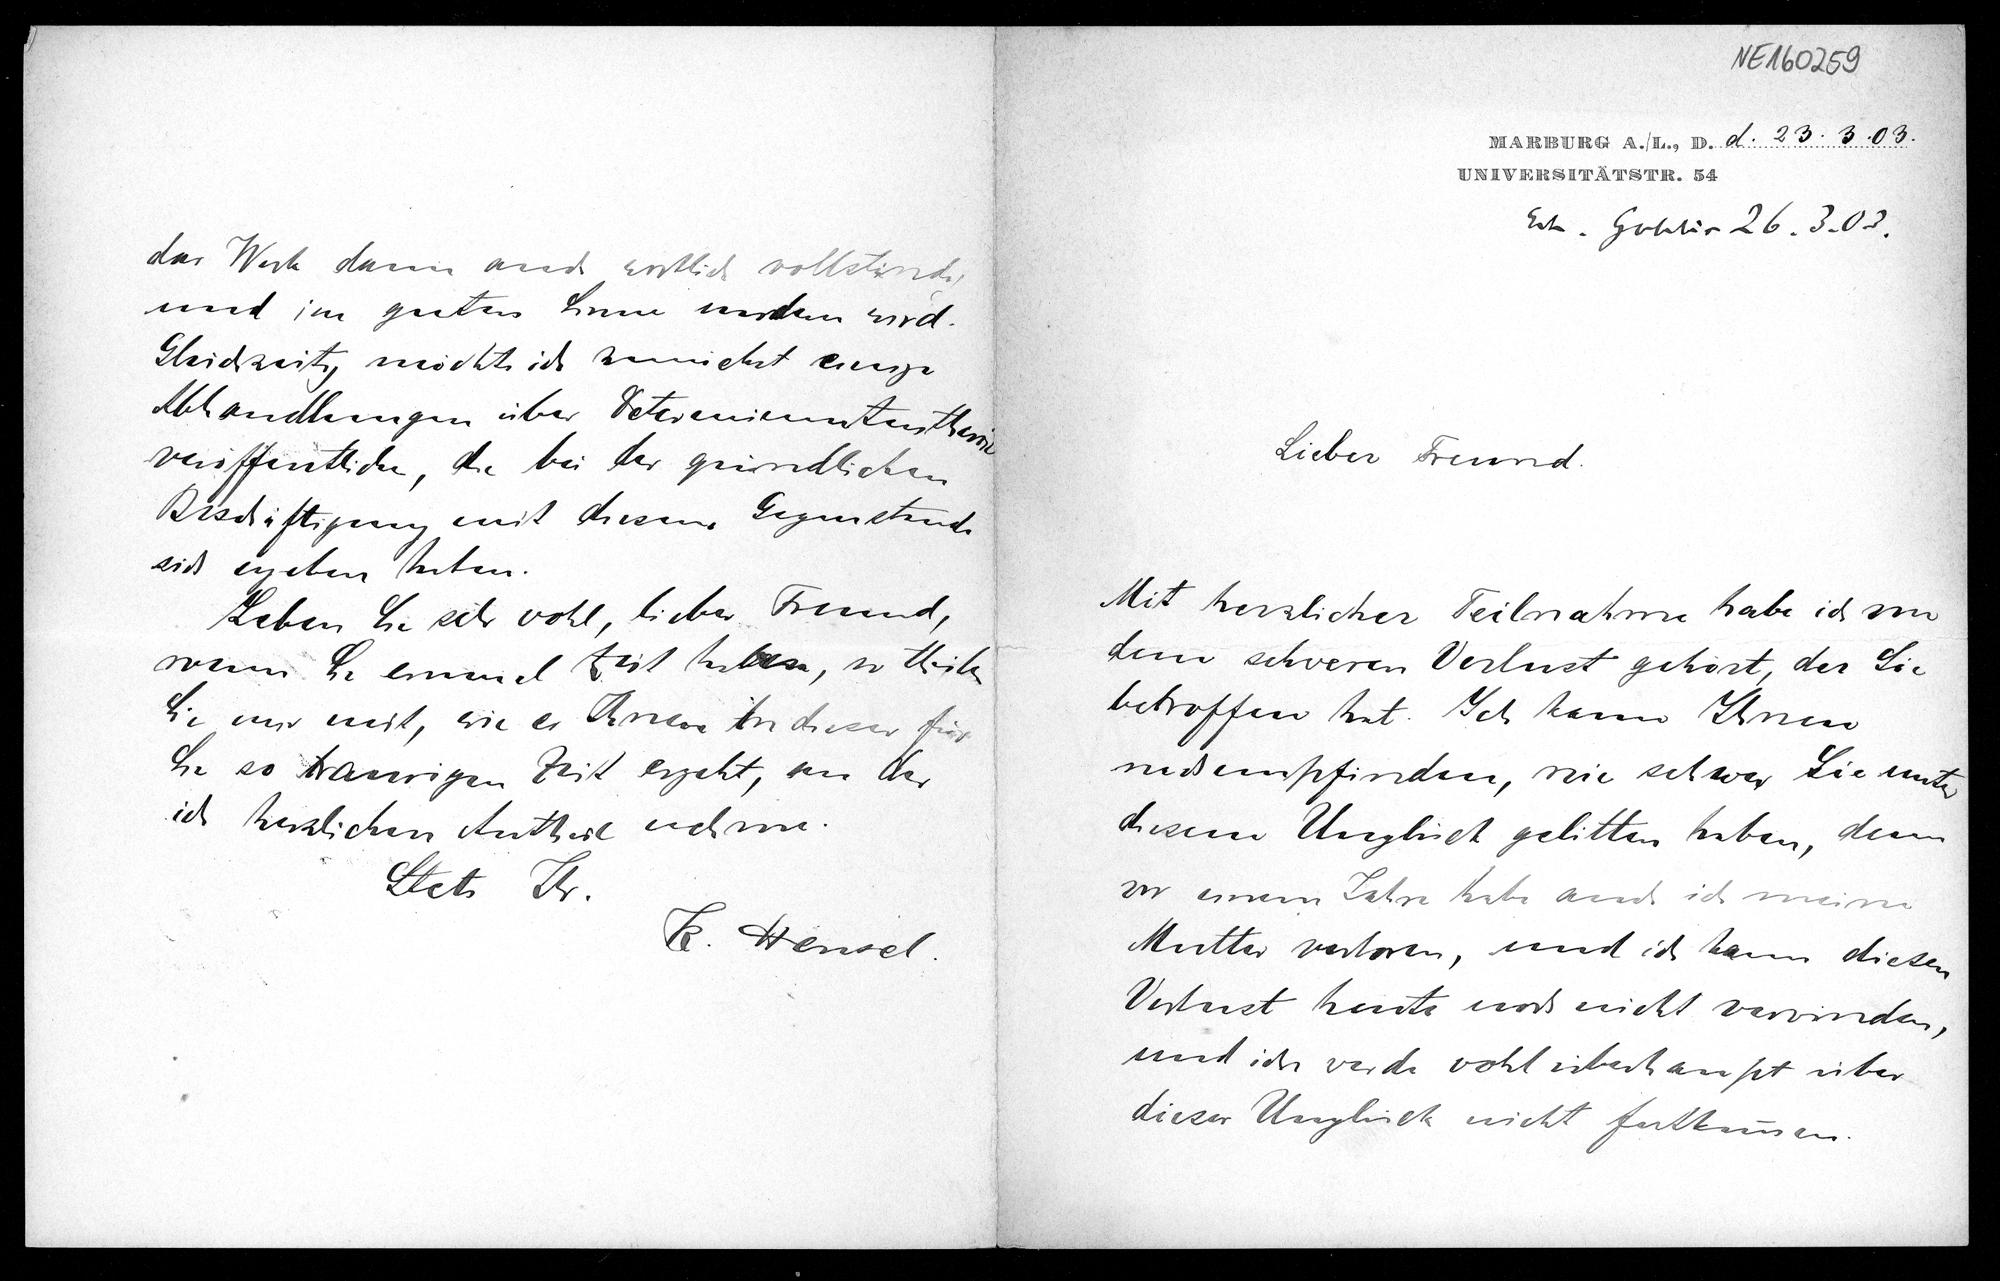 NE160259
MARBURG A./L., D. d. 23.3.03.
UNIVERSITÄTSTR. 54
26.3.03.
Lieber Freund.
Mit herzlicher Teilnahme habe ich von
dem schweren Verlust gehört, der Sie
betroffen hat. Ich kann Ihnen
nachempfinden, wie schwer Sie unter
diesem Unglück gelitten haben, denn
vor einem Jahre habe auch ich meine
Mutter verloren, und ich kann diesen
Verlust heute noch nicht verwinden,
und ich werde wohl überhaupt über
dieses Unglück nicht fortkom̄en.
das Werk dann auch wirklich vollständig
und im guten Sinne werden wird.
Gleichzeitig möchte ich zunächst einige
Abhandlungen über Determinantentheorie
veröffentlichen, die bei der gründlichen
Beschäftigung mit diesem Gegenstande
sich ergeben haben.
Leben Sie sehr wohl, lieber Freund,
wenn Sie einmal Zeit haben, so theilen
Sie mir mit, wie es Ihnen in dieser für
Sie so traurigen Zeit ergeht, an der
ich herzlichen Antheil nehme.
Stets Ihr.
K. Hensel.